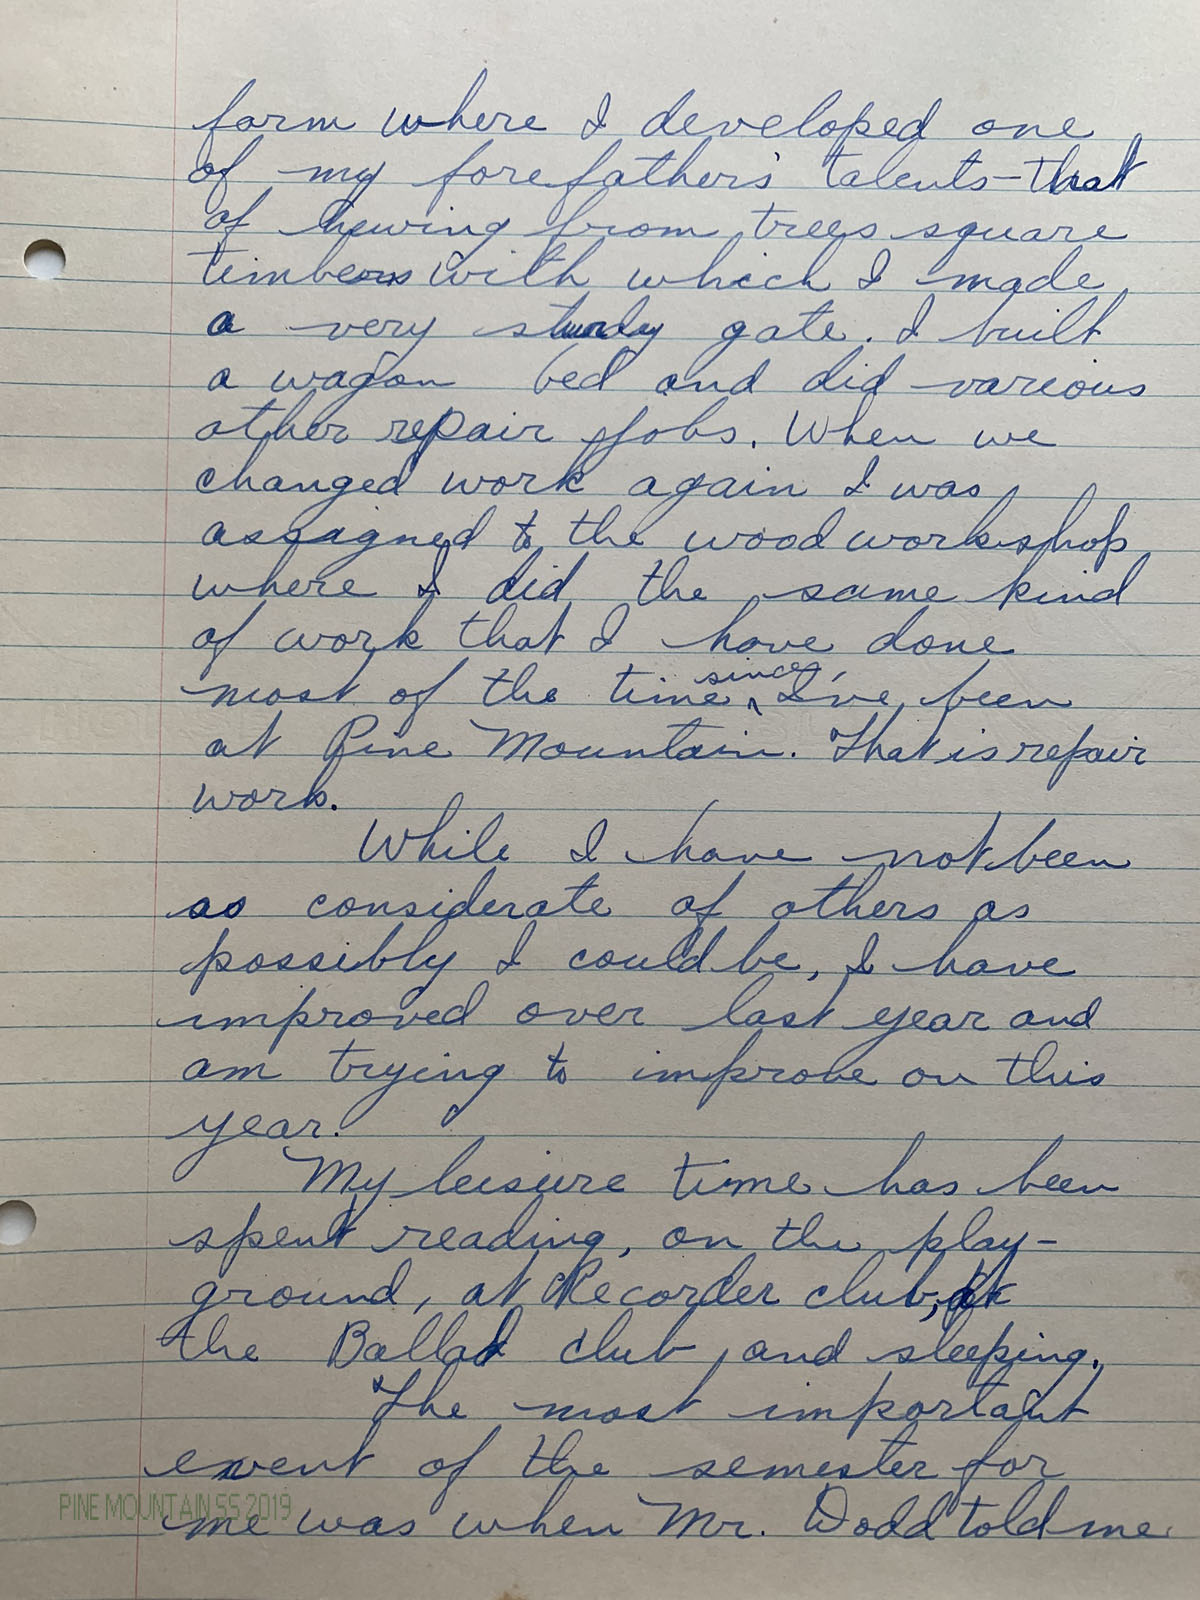 farm where I developed one
of my forefather's talents - that
of hewing from trees square
timbers with which I made
a very sturdy gate. I built
a wagon bed and did various
other repair jobs. When we
changed work again I was
assagned to the wood workshop
where I did the same kind
of work that I have done
most of the time since I've been
at Pine Mountain. That is repair
work.
While I have not been
as considerate of others as
possibly I could be, I have
improved over last year and
am trying to improve on this
year.
My leisure time has been
spent reading, on the play-
ground, at Recorder club, at
the Ballad club, and sleeping.
The most important
event of the semester for
PINE MOUNTAIN SS 2019
me was when Mr. Dodd told me